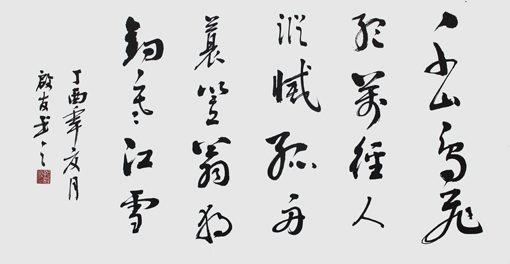 千山鳥飛
絕萬徑人
蹤滅孤舟
蓑笠翁獨
釣寒江雪
丁酉年夏月
啟友书之